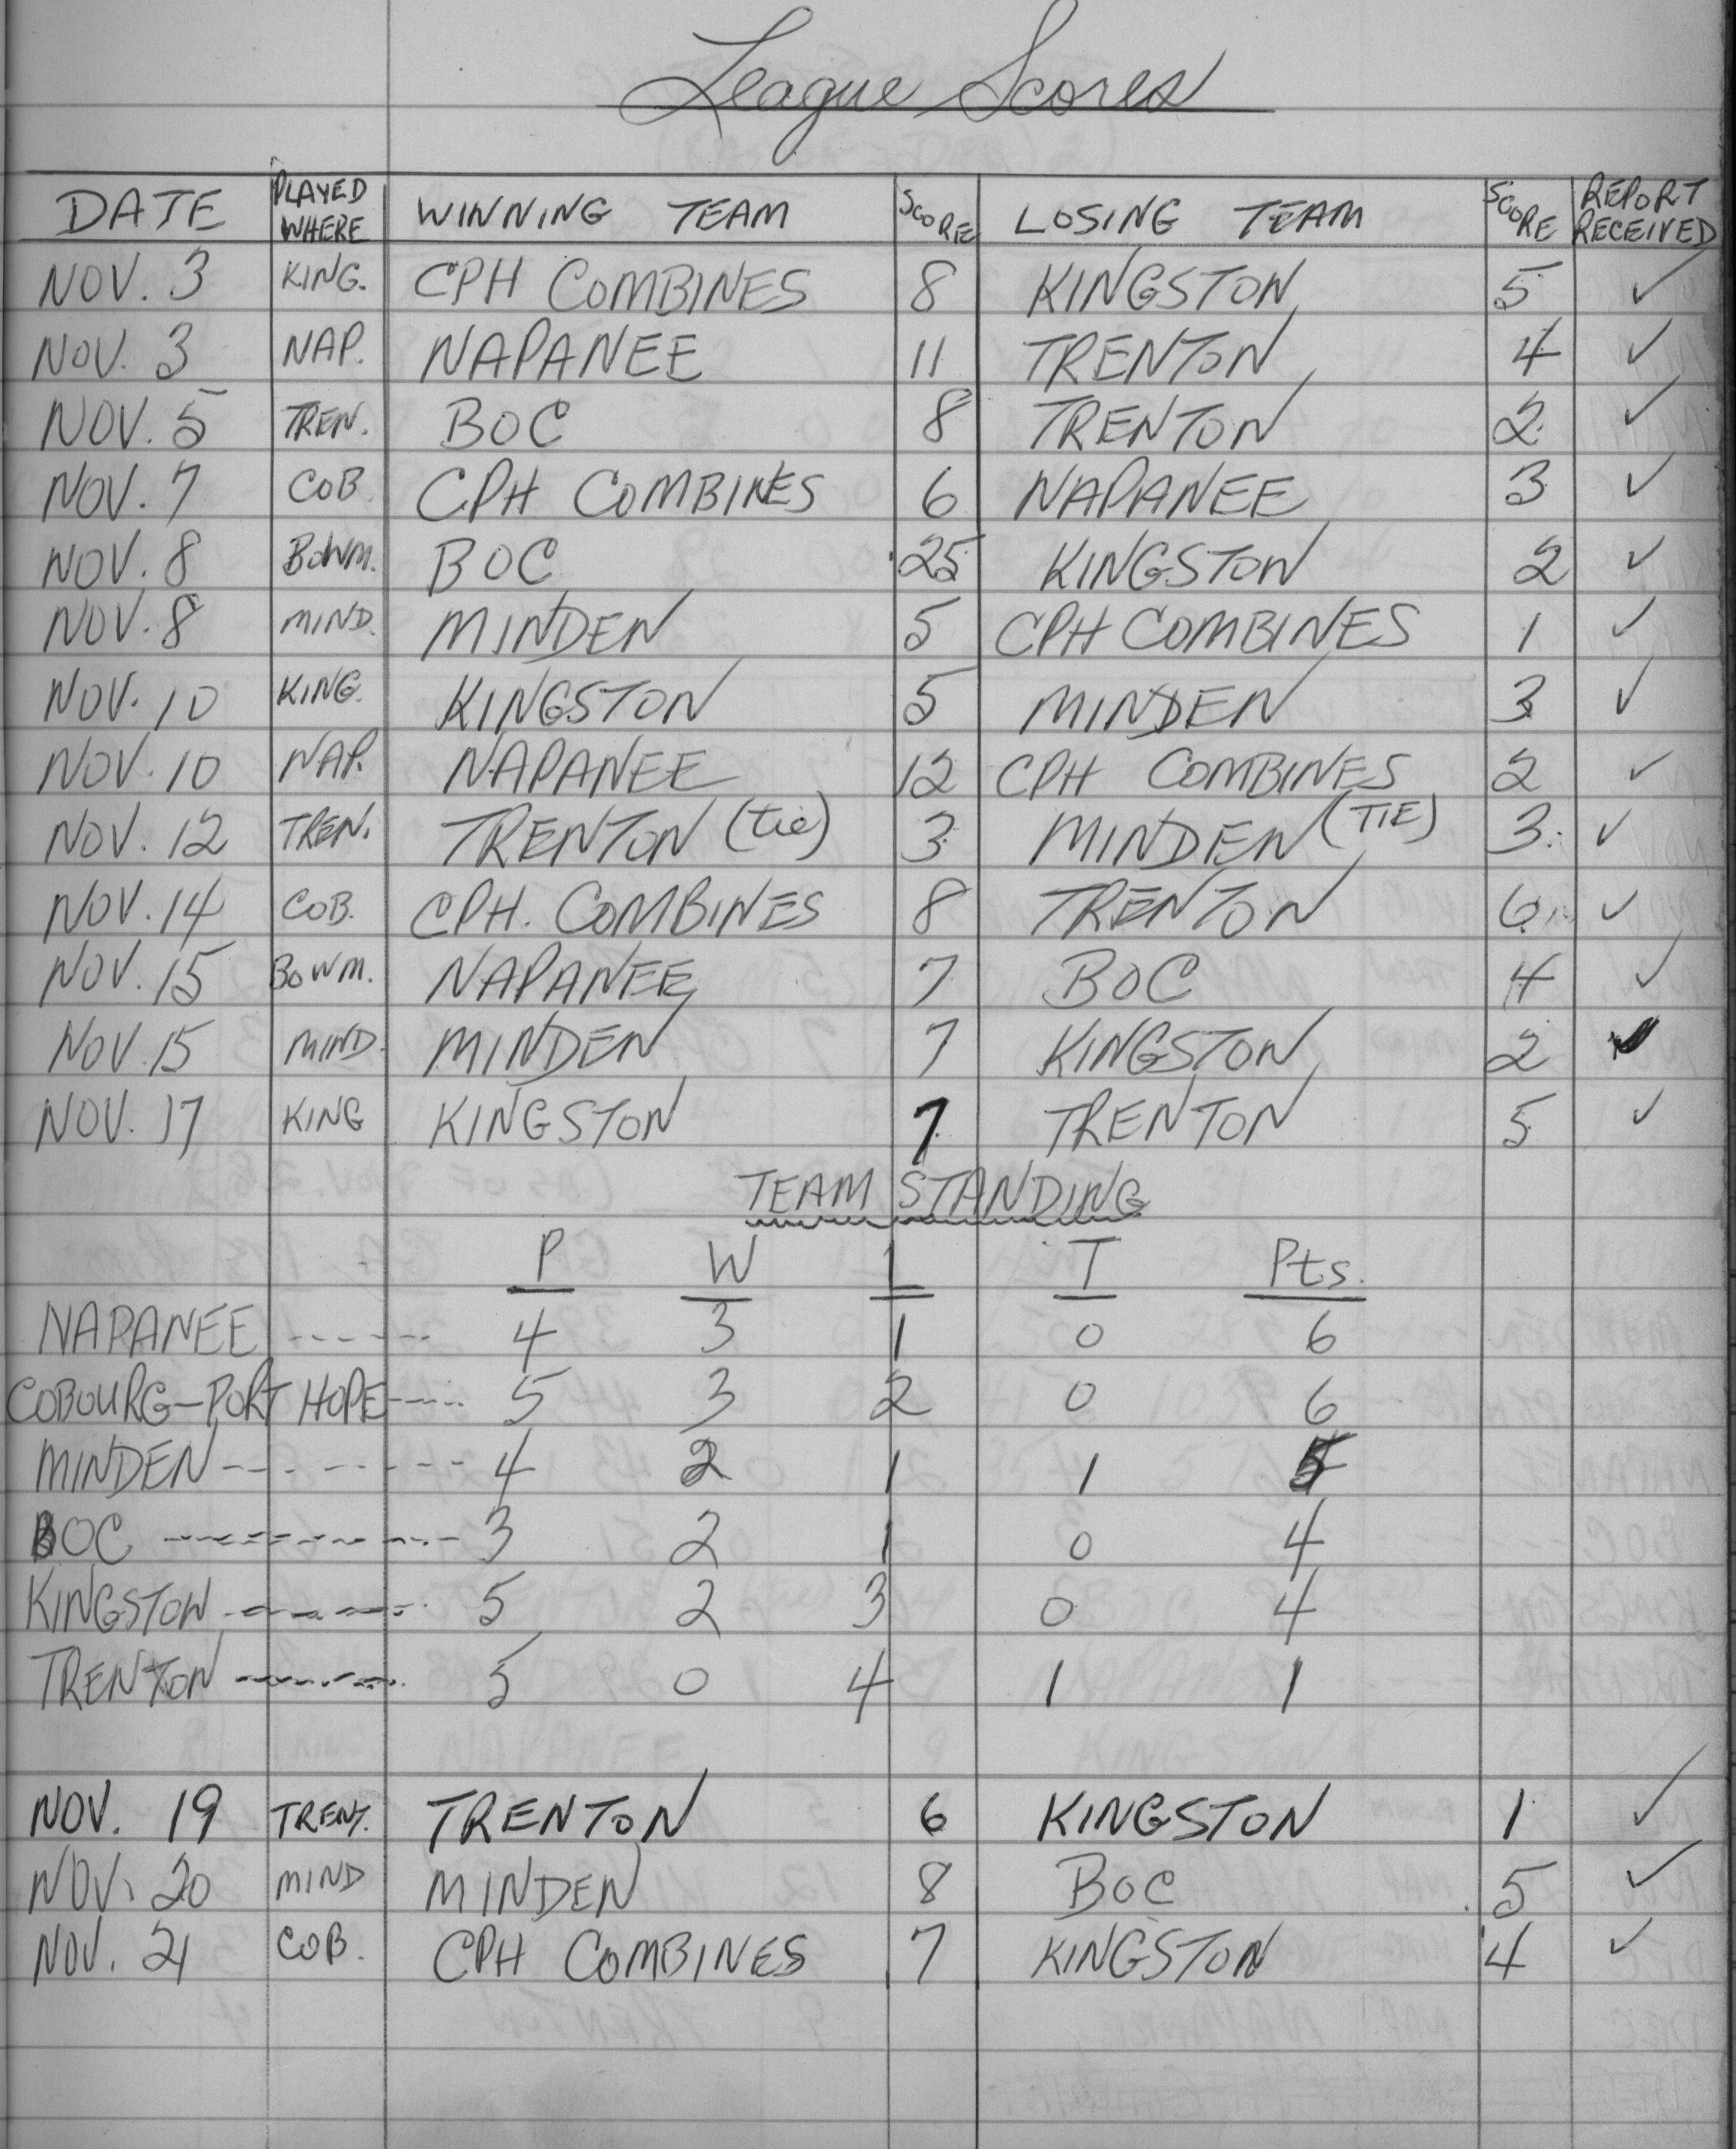 League Scores
DATE PLAYED WHERE WINNING TEAM SCORE LOSING TEAM SCORE REPORT RECEIVED
NOV. 3 KING. CPH COMBINES 8 KINGSTON 5 ✓
NOV. 3 NAP. NAPANEE 11 TRENTON 4 ✓
NOV. 5 TREN. BOC 8 TRENTON 2 ✓
NOV. 7 COB CPH COMBINES 6 NAPANEE 3 ✓
NOV. 8 BOWM. BOC 25 KINGSTON 2 ✓
NOV. 8 MIND. MINDEN 5 CPH COMBINES 1 ✓
NOV. 10 KING. KINGSTON 5 MINDEN 3 ✓
NOV. 10 NAP. NAPANEE 12 CPH COMBINES 2 ✓
NOV. 12 TREN. TRENTON (tie) 3 MINDEN (TIE) 3 ✓
NOV. 14 COB. CPH. COMBINES 8 TRENTON 6 ✓
NOV. 15 BOWM. NAPANEE 7 BOC 4 ✓
NOV. 15 MIND. MINDEN 7 KINGSTON 2 ✓
NOV. 17 KING KINGSTON 7 TRENTON 5 ✓
TEAM STANDING
P W L T Pts.
NAPANEE ------ 4 3 1 0 6
COBOURG-PORT HOPE ----- 5 3 2 0 6
MINDEN --------- 4 2 1 1 5
BOC ----------- 3 2 1 0 4
KINGSTON -------- 5 2 3 0 4
TRENTON -------- 5 0 4 1 1
NOV. 19 TRENT. TRENTON 6 KINGSTON 1 ✓
NOV. 20 MIND MINDEN 8 BOC 5 ✓
NOV. 21 COB. CPH COMBINES 7 KINGSTON 4 ✓